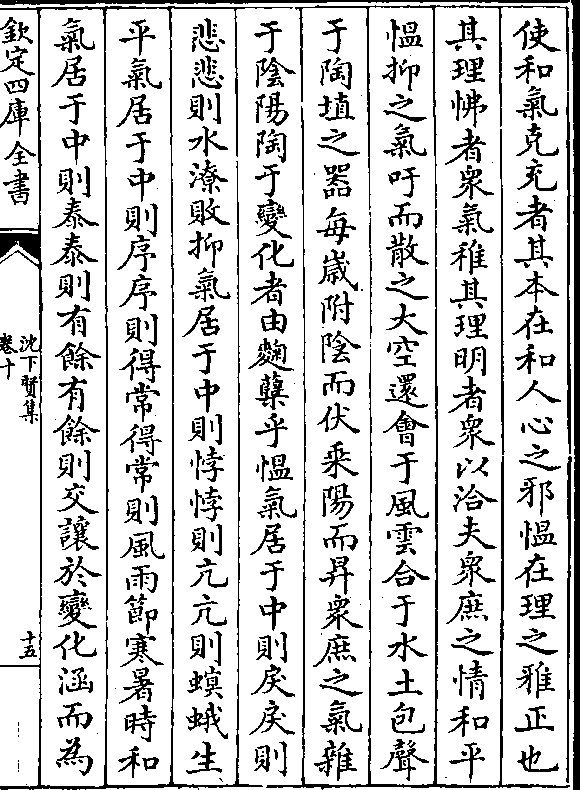 使和氣克充者其本在和人心之邪慍在理之雅正也
其理怫者衆氣稚其理明者衆以洽夫衆庶之情和平
愠抑之氣吁而散之大空還會于風雲合于水土包聲
于陶埴之器每歳附陰而伏乘陽而昇衆庶之氣雜
于陰陽陶于變化者由麴糵乎愠氣居于中則戾戾則
悲悲則水潦敗抑氣居于中則悖悖則亢亢則螟蛾生
平氣居于中則序序則得常得常則風雨節寒暑時和
氣居于中則泰泰則有餘有餘則交讓於變化涵而為
欽定四庫全書
沈下賢集
卷十
十五